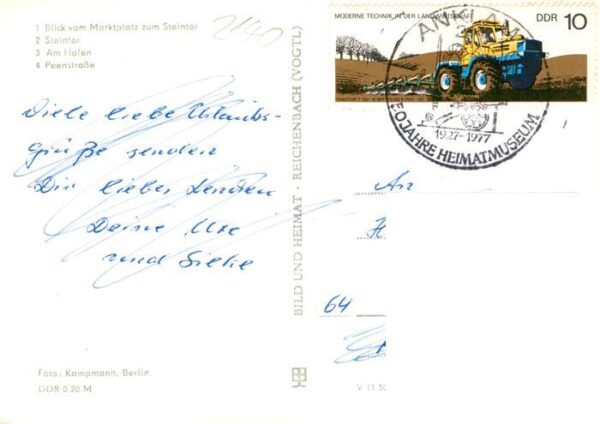 1 Blick vom Marktplatz zum Steintor
2 Steintor
3 Am Hafen
4 Peenstraße
2140
Viele liebe Urlaubs-
grüße senden
Dir lieber
Deine Ute
und
Foto: Kampmann, Berlin
DDR 0,20 M
BILD UND HEIMAT · REICHENBACH (VOGTL)
MODERNE TECHNIK IN DER LANDWIRTSCHAFT
DDR 10
ANKLAM
1927-1977
50 JAHRE HEIMATMUSEUM
An
64
V 11 50